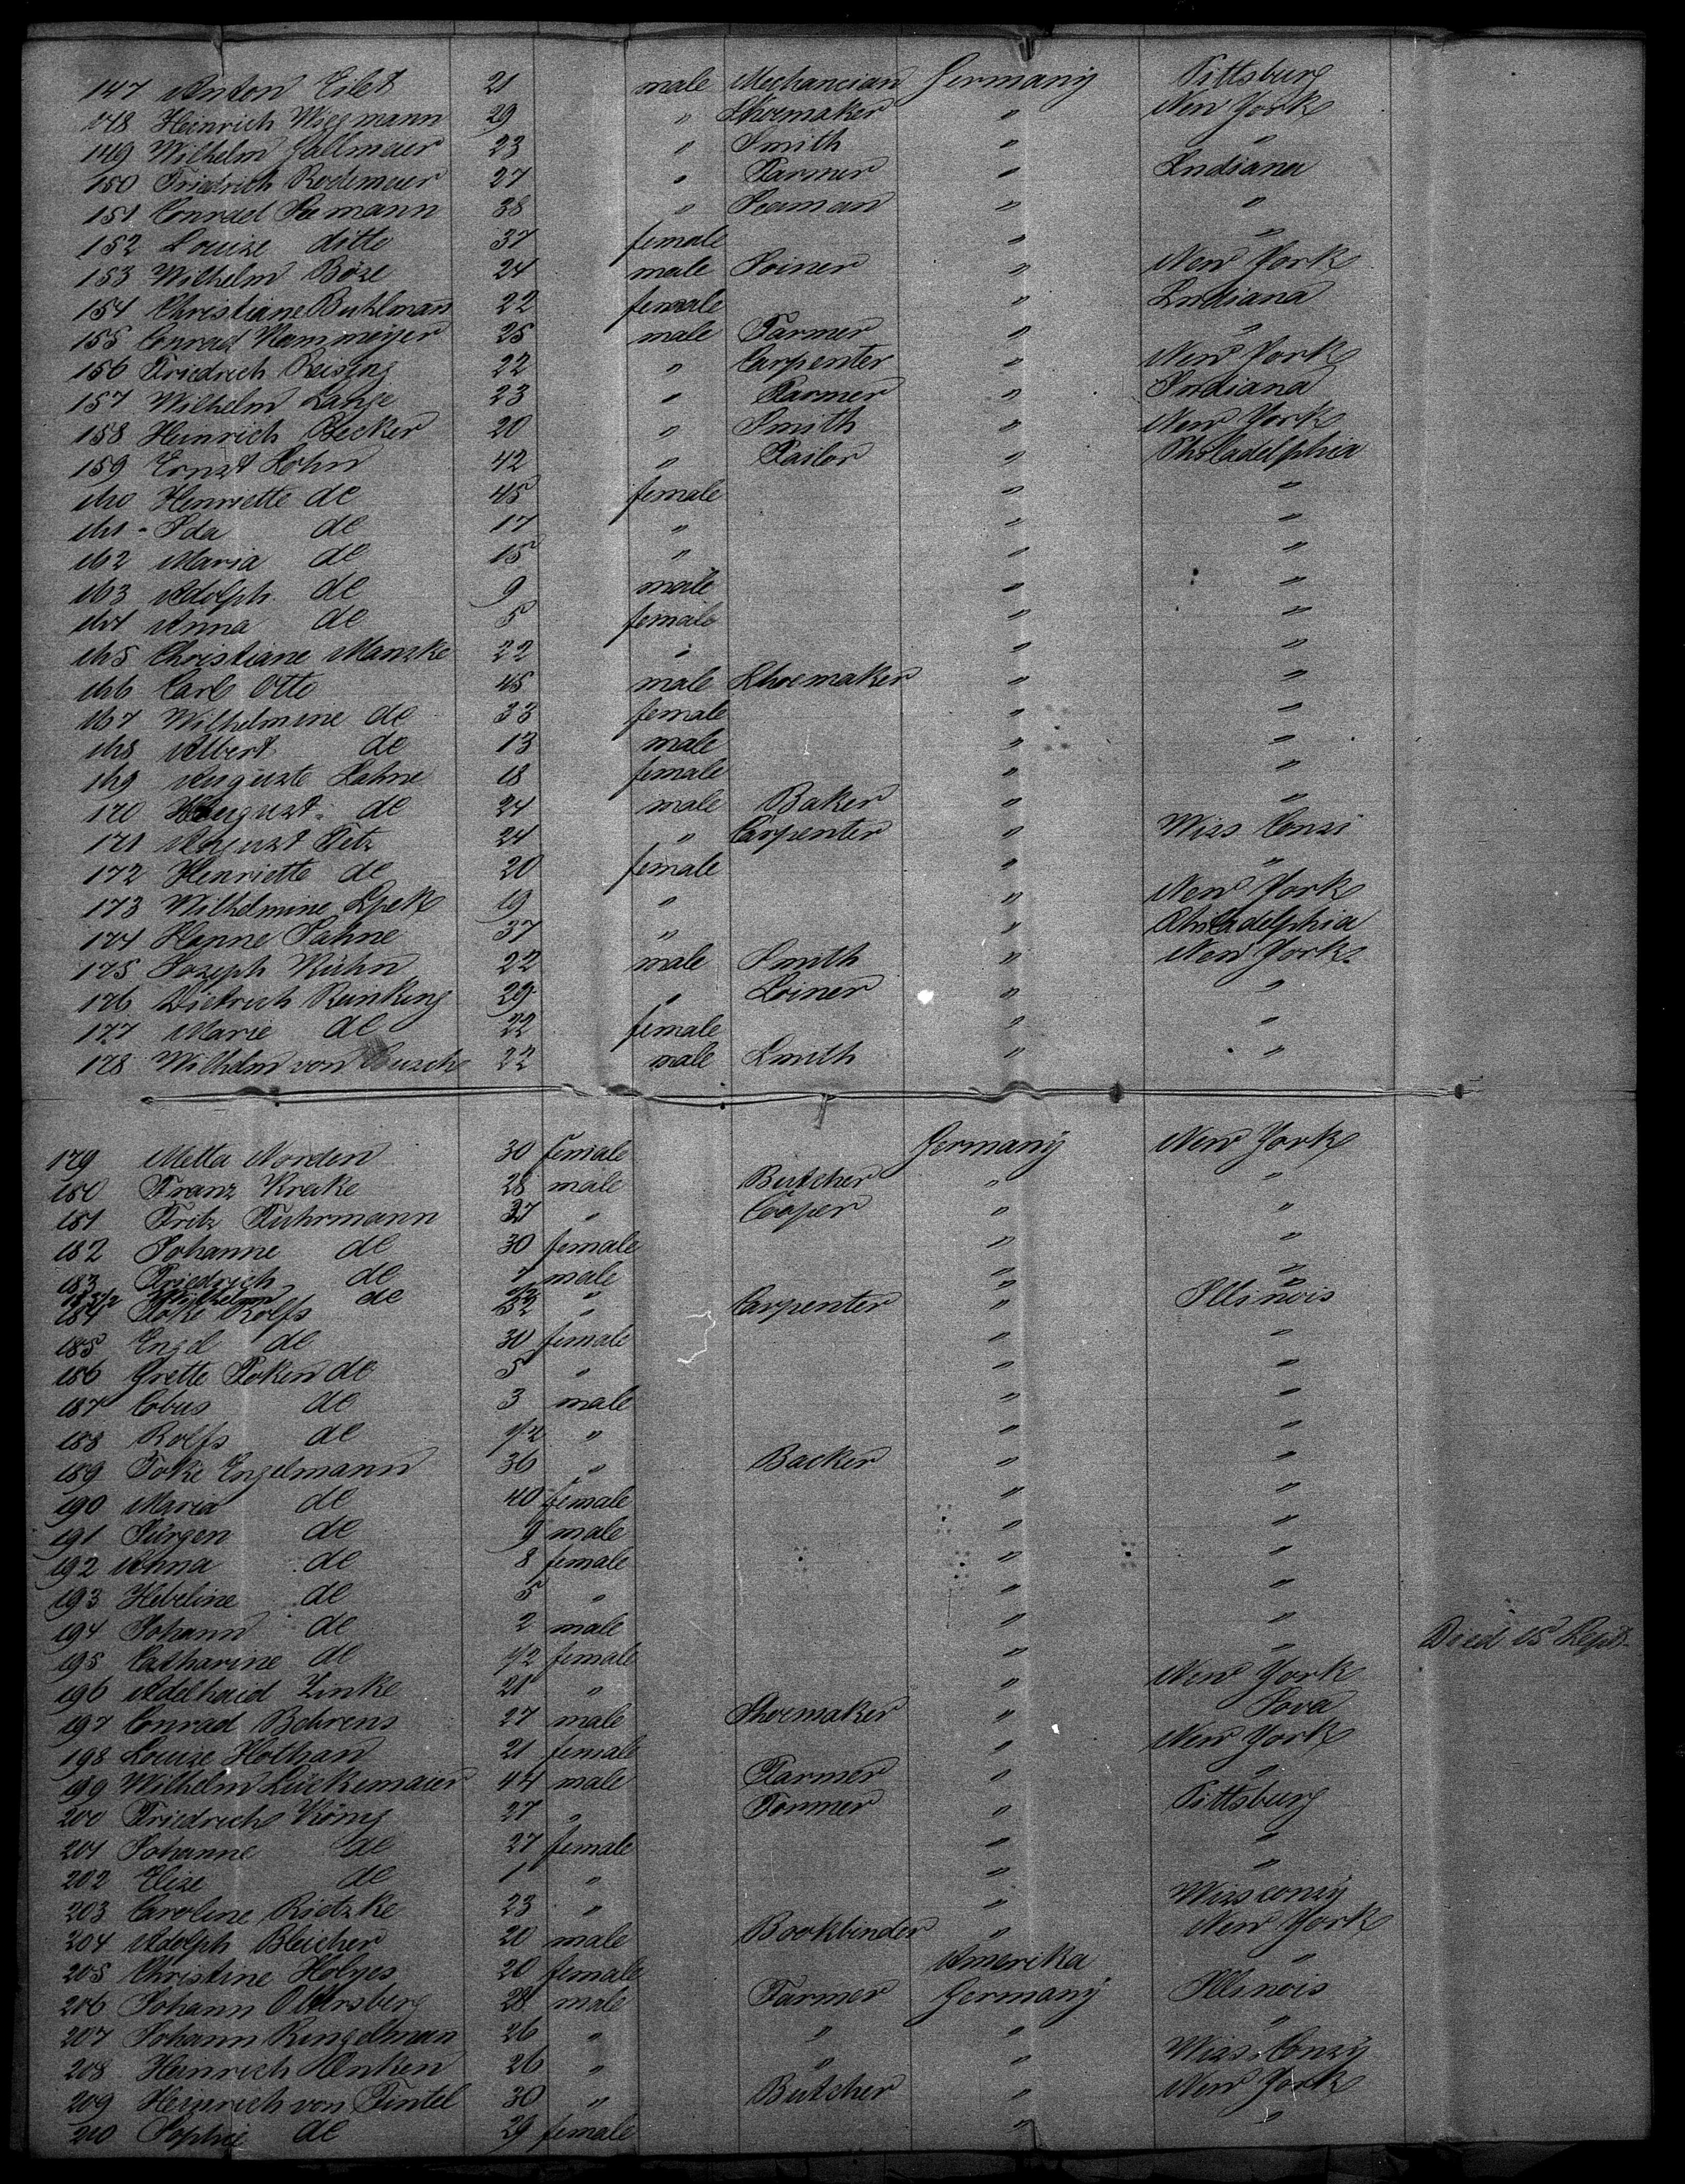 147 Anton Eilet 21 male Mechancian Germany Pittsburg
148 Heinrich Wiegmann 29 " Shoemaker " New York
149 Wilhelm Hallmeier 23 " Smith " "
150 Friedrich Rodemeier 27 " Farmer " Indiana
151 Conrad 38 " Seaman " "
152 Louise ditto 37 female " "
153 Wilhelm Böse 24 male Joiner " New York
154 Christiane Buhlman 22 female " Indiana
155 Conrad Kammeijer 25 male Farmer " "
156 Friedrich Reising 22 " Carpenter " New York
157 Wilhelm Lange 23 " Farmer " Indiana
158 Heinrich Becker 20 " Smith " New York
159 Ernst Hohn 42 " Tailor " Philadelphia
160 Henriette de 45 female " "
161 Ida de 17 " " "
162 Maria de 15 " " "
163 Adolph de 9 male " "
164 Anna de 5 female " "
165 Christiane Manzke 22 " " "
166 Carl Otto 45 male Shoemaker " "
167 Wilhelmine de 33 female " "
168 Albert de 13 male " "
169 Auguste Hahne 18 female " "
170 August de 24 male Baker " "
171 August Tetz 24 " Carpenter " Wiss Consi
172 Henriette de 20 female " "
173 Wilhelmine Spek 19 " " New York
174 Hanne Hahne 37 " " Philadelphia
175 Joseph Kühn 22 male Smith " New York
176 Dietrich Reinking 29 " Joiner " "
177 Marie de 22 female " "
178 Wilhelm von Busch 22 male Smith " "
179 Metta Norden 30 female Germany New York
180 Franz Krake 28 male Butcher " "
181 Fritz Fuhrmann 37 " Cooper " "
182 Johanne de 30 female " "
183 Friedrich de 7 male " "
183 1/2 Wilhelm de 1/2 " " "
184 Foke Rolfs 32 " Carpenter " Illinois
185 Engel de 30 female " "
186 Grette Foken de 5 " " "
187 Cobus de 3 male " "
188 Rolfs de 1/2 " " "
189 Foke Engelmann 36 " Backer " "
190 Maria de 40 female " "
191 Jürgen de 9 male " "
192 Anna de 8 female " "
193 Hebeline de 5 " " "
194 Johann de 2 male " "
195 Catharine de 1/2 female " " Died 15 Sept.
196 Adelhaid Zinke 21 " " New York
197 Conrad Behrens 27 male Shoemaker " Iova
198 Louise Hothan 21 female " New York
199 Wilhelm Lückemaier 44 male Farmer " "
200 Friedrich König 27 " Formner " Pittsburg
201 Johanne de 27 female " "
202 Elise de 1 " " "
203 Caroline Rietzke 23 " " Wisconzy
204 Adolph Bleicher 20 male Bookbinder " New York
205 Christine Holyes 20 female Amerika "
206 Johann 28 male Farmer Germany Illinois
207 Johann Ringelman 26 " " " "
208 Heinrich Oenken 26 " " " Wiss. Conzy
209 Heinrich von Fintel 30 " Butcher " New York
210 Sophie de 29 female " "